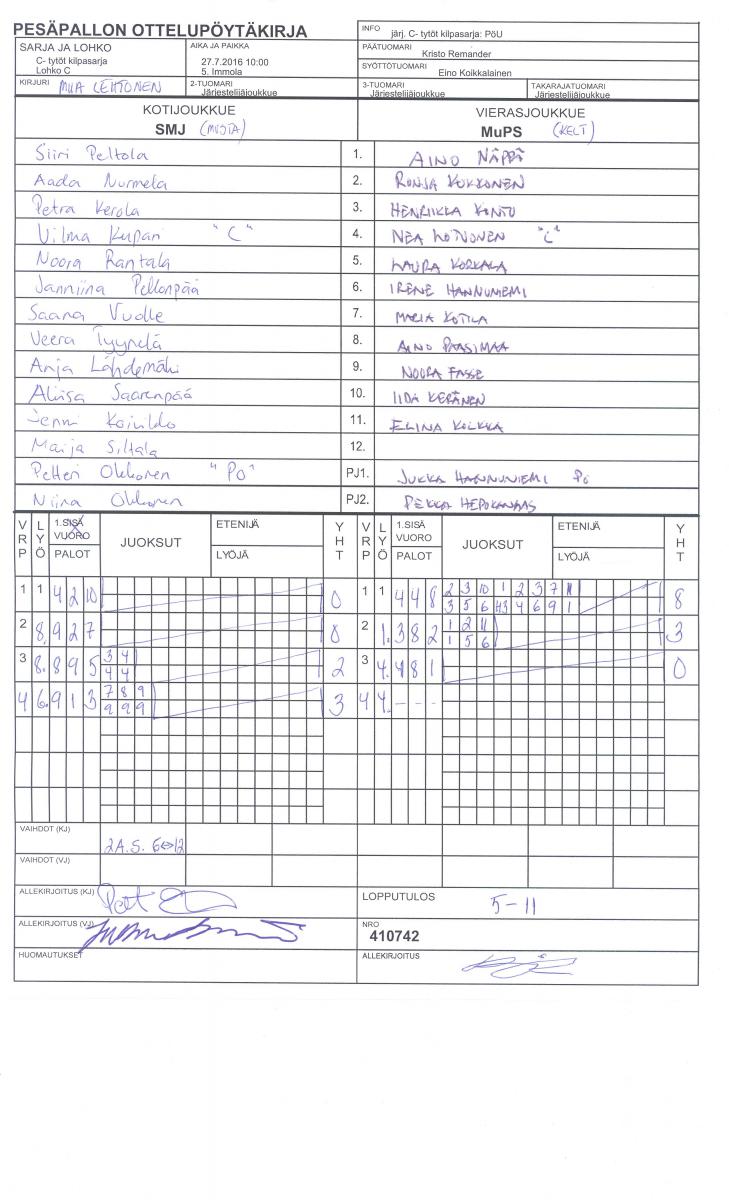 PESÄPALLON OTTELUPÖYTÄKIRJA
INFO järj. C- tytöt kilpasarja: PöU
SARJA JA LOHKO
C- tytöt kilpasarja
Lohko C
AIKA JA PAIKKA
27.7.2016 10:00
5. Immola
PÄÄTUOMARI
Kristo Remander
SYÖTTÖTUOMARI
Eino Koikkalainen
KIRJURI LEHTONEN
2-TUOMARI
Järjestelijäjoukkue
3-TUOMARI
Järjestelijäjoukkue
TAKARAJATUOMARI
Järjestelijäjoukkue
KOTIJOUKKUE
SMJ (MUSTA)
VIERASJOUKKUE
MuPS (KELT)
Siiri Peltola 1. AINO NÄPPÄ
Aada Nurmela 2. RONJA KOKKONEN
Petra Kerola 3. HENRIIKKA KONTU
Vilma Kupari "C" 4. NEA "C"
Noora Rantala 5. LAURA KORKALA
Janniina Pellonpää 6. IRENE HANNUNIEMI
Saana Vuolle 7. MARIA KOTILA
Veera Tyynelä 8. AINO PAASIMAA
Anja Lähdemäki 9. NOORA FASSE
Aliisa Saarenpää 10. IIDA KERÄNEN
Jenni 11. ELINA KOLKKA
Maija Siltala 12.
Petteri Okkonen "PO" PJ1. JUKKA HANNUNIEMI PO
Niina Okkonen PJ2. PEKKA HEPOKANGAS
VRP LYÖ 1.SISÄ VUORO PALOT JUOKSUT ETENIJÄ LYÖJÄ YHT
VRP LYÖ 1.SISÄ VUORO PALOT JUOKSUT ETENIJÄ LYÖJÄ YHT
1 1 4 2 10 0 1 1 4 4 8 2 3 10 1 2 3 7 11 8
3 5 6 4 6 9 1
2 8. 9 2 7 0 2 1. 3 8 2 1 2 11 3
1 5 6
3 8. 8 9 5 3 4 2 3 4. 4 8 1 0
4 4
4 6. 9 1 3 7 8 9 3 4 4. - - -
9 9 9
VAIHDOT (KJ)
2A.S. 6⇔12
VAIHDOT (VJ)
ALLEKIRJOITUS (KJ)
LOPPUTULOS 5-11
ALLEKIRJOITUS (VJ)
NRO
410742
HUOMAUTUKSET
ALLEKIRJOITUS